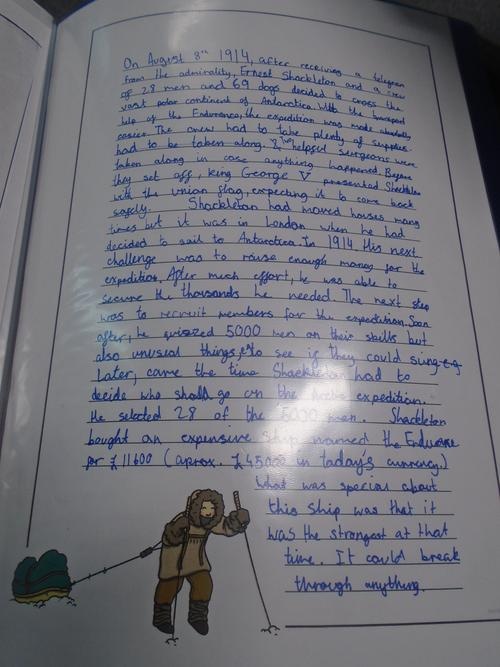 On August 8th 1914, after receiving a telegram
from the admirality, Ernest Shackleton and a crew
of 28 men and 69 dogs decided to cross the
vast polar continent of Antarctica. With the transport
help of the Endurance, the expedition was made
easier. The crew had to take plenty of supplies.
had to be taken along. Two helpful surgeons were
taken along in case anything happened. Before
they set off, king George V presented Shackleton
with the union flag, expecting it to come back
safely. Shackleton had moved houses many
times but it was in London when he had
decided to sail to Antarctica. In 1914 His next
challenge was to raise enough money for the
expedition. After much effort, he was able to
secure the thousands he needed. The next step
was to recruit members for the expedition. Soon
after, he quizzed 5000 men on their skills but
also unusual things, to see if they could sing
Later, came the time Shackleton had to
decide who should go on the expedition.
He selected 28 of the 5000 men. Shackleton
bought an expensive ship named the Endurance
for £11600 (aprox. £45000 in today's currency.)
What was special about
this ship was that it
was the strongest at that
time. It could break
through anything.